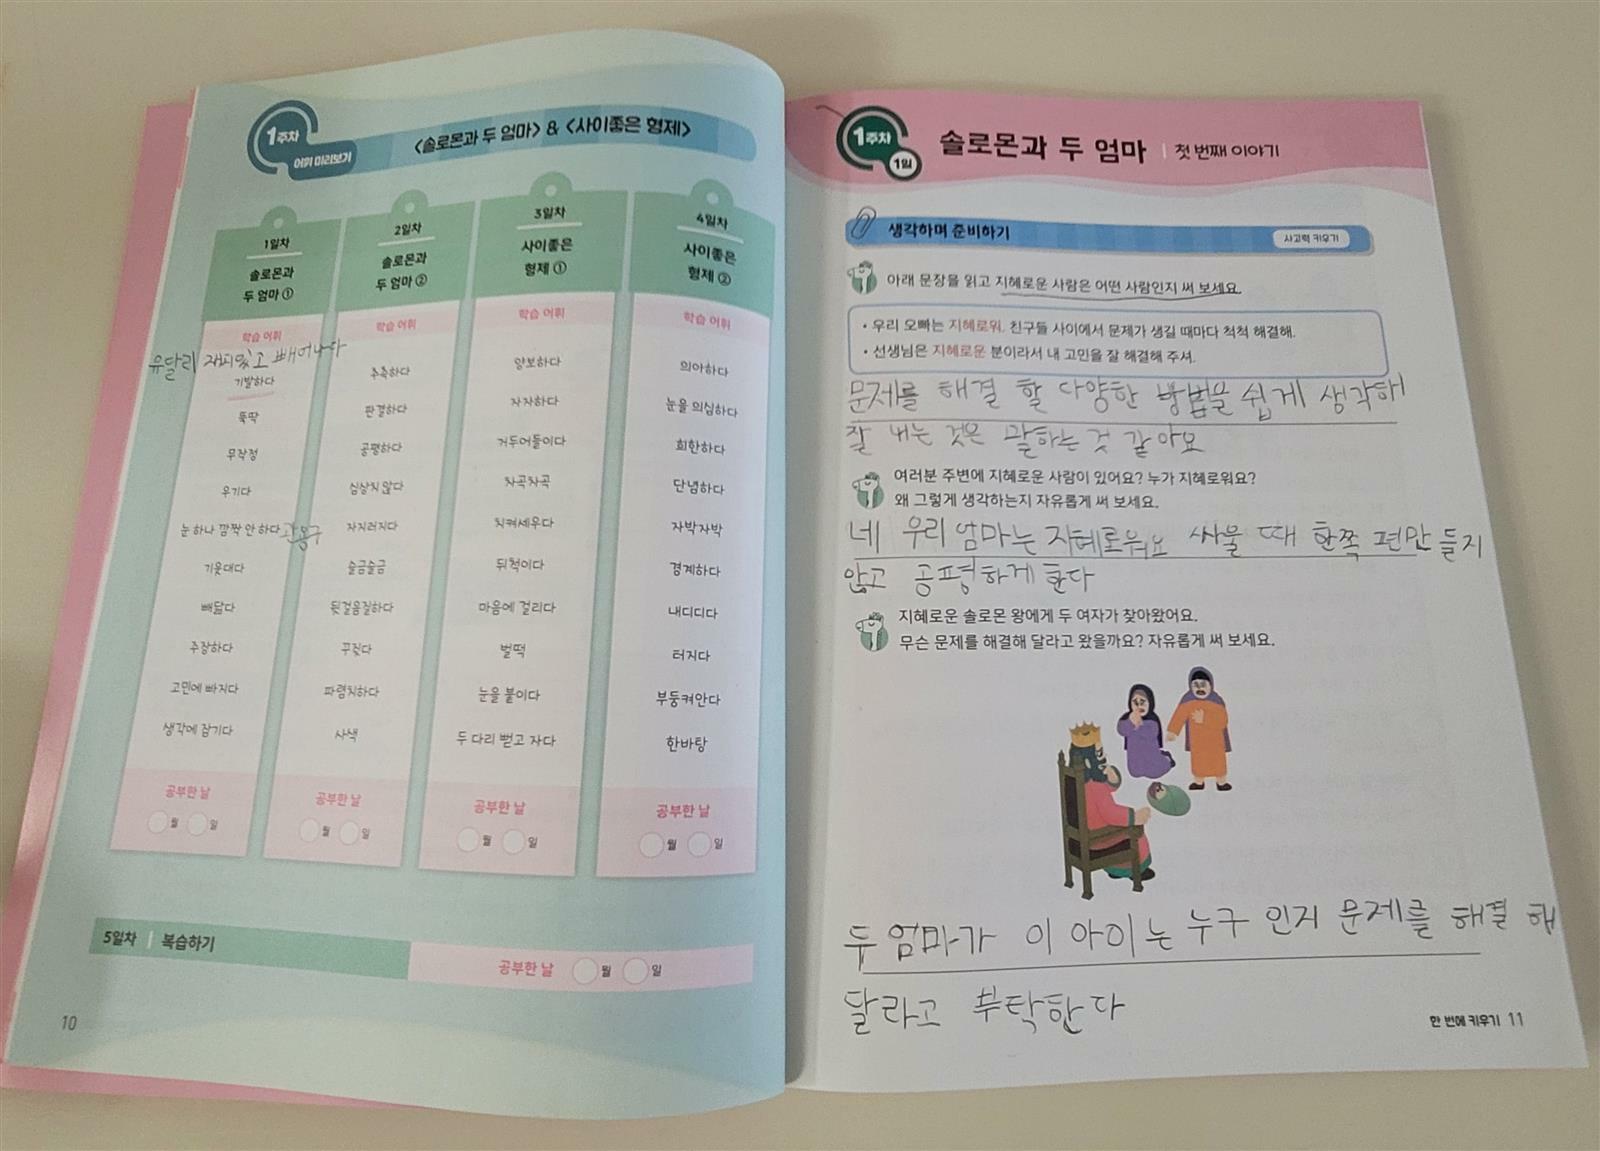 1주차
어휘 미리보기
<솔로몬과 두 엄마> & <사이좋은 형제>
1일차
솔로몬과
두 엄마 ①
학습 어휘
유달리 재치있고 빼어나다
기발하다
뚝딱
무작정
우기다
눈 하나 깜짝 안 하다 관용구
기웃대다
빼닮다
주장하다
고민에 빠지다
생각에 잠기다
공부한 날
월 일
2일차
솔로몬과
두 엄마 ②
학습 어휘
추측하다
판결하다
공평하다
심상치 않다
자지러지다
슬금슬금
뒷걸음질하다
꾸짖다
파렴치하다
사색
공부한 날
월 일
3일차
사이좋은
형제 ①
학습 어휘
양보하다
자자하다
거두어들이다
차곡차곡
치켜세우다
뒤척이다
마음에 걸리다
벌떡
눈을 붙이다
두 다리 뻗고 자다
공부한 날
월 일
4일차
사이좋은
형제 ②
학습 어휘
의아하다
눈을 의심하다
희한하다
단념하다
자박자박
경계하다
내디디다
터지다
부둥켜안다
한바탕
공부한 날
월 일
5일차 | 복습하기
공부한 날 월 일
10
1주차
1일
솔로몬과 두 엄마 | 첫 번째 이야기
생각하며 준비하기
사고력 키우기
아래 문장을 읽고 지혜로운 사람은 어떤 사람인지 써 보세요.
• 우리 오빠는 지혜로워. 친구들 사이에서 문제가 생길 때마다 척척 해결해.
• 선생님은 지혜로운 분이라서 내 고민을 잘 해결해 주셔.
문제를 해결 할 다양한 방법을 쉽게 생각해
잘 내는 것은 말하는 것 같아요
여러분 주변에 지혜로운 사람이 있어요? 누가 지혜로워요?
왜 그렇게 생각하는지 자유롭게 써 보세요.
네 우리 엄마는 지혜로워요 싸울 때 한쪽 편만 들지
않고 공평하게 한다
지혜로운 솔로몬 왕에게 두 여자가 찾아왔어요.
무슨 문제를 해결해 달라고 왔을까요? 자유롭게 써 보세요.
두 엄마가 이 아이는 누구 인지 문제를 해결 해
달라고 부탁한다
한 번에 키우기 11